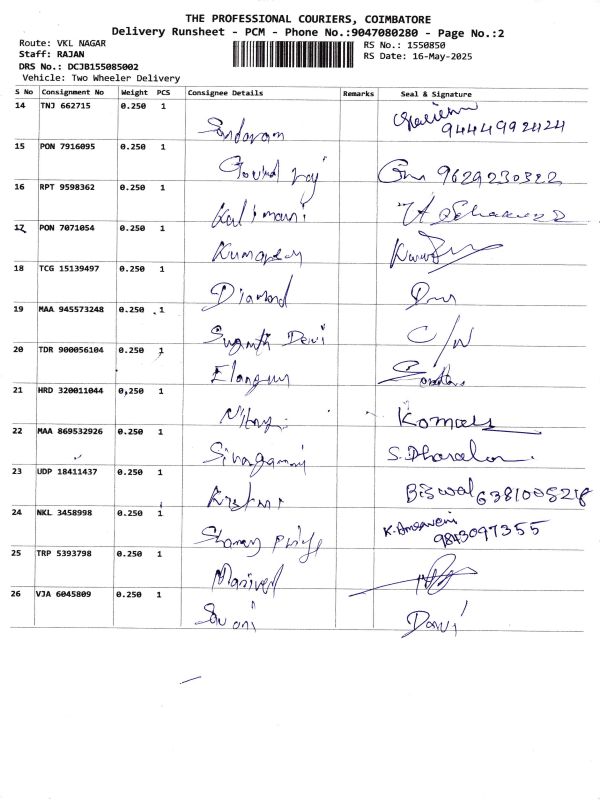 THE PROFESSIONAL COURIERS, COIMBATORE
Delivery Runsheet - PCM - Phone No.:9047080280 - Page No.:2
Route: VKL NAGAR
Staff: RAJAN
DRS No.: DCJB155085002
Vehicle: Two Wheeler Delivery
RS No.: 1550850
RS Date: 16-May-2025
S No Consignment No Weight PCS Consignee Details Remarks Seal & Signature
14 TNJ 662715 0.250 1
Sundaram 9444992424
15 PON 7916095 0.250 1
Govind raj 9629230322
16 RPT 9598362 0.250 1
Kalimani
17 PON 7071054 0.250 1
18 TCG 15139497 0.250 1
Diamond
19 MAA 945573248 0.250 1
Suganth Devi C/N
20 TDR 900056104 0.250 1
21 HRD 320011044 0,250 1
22 MAA 869532926 0.250 1
Sivagami S.Dharalon
23 UDP 18411437 0.250 1
Biswal
24 NKL 3458998 0.250 1
9843097355
25 TRP 5393798 0.250 1
26 VJA 6045809 0.250 1
Devi